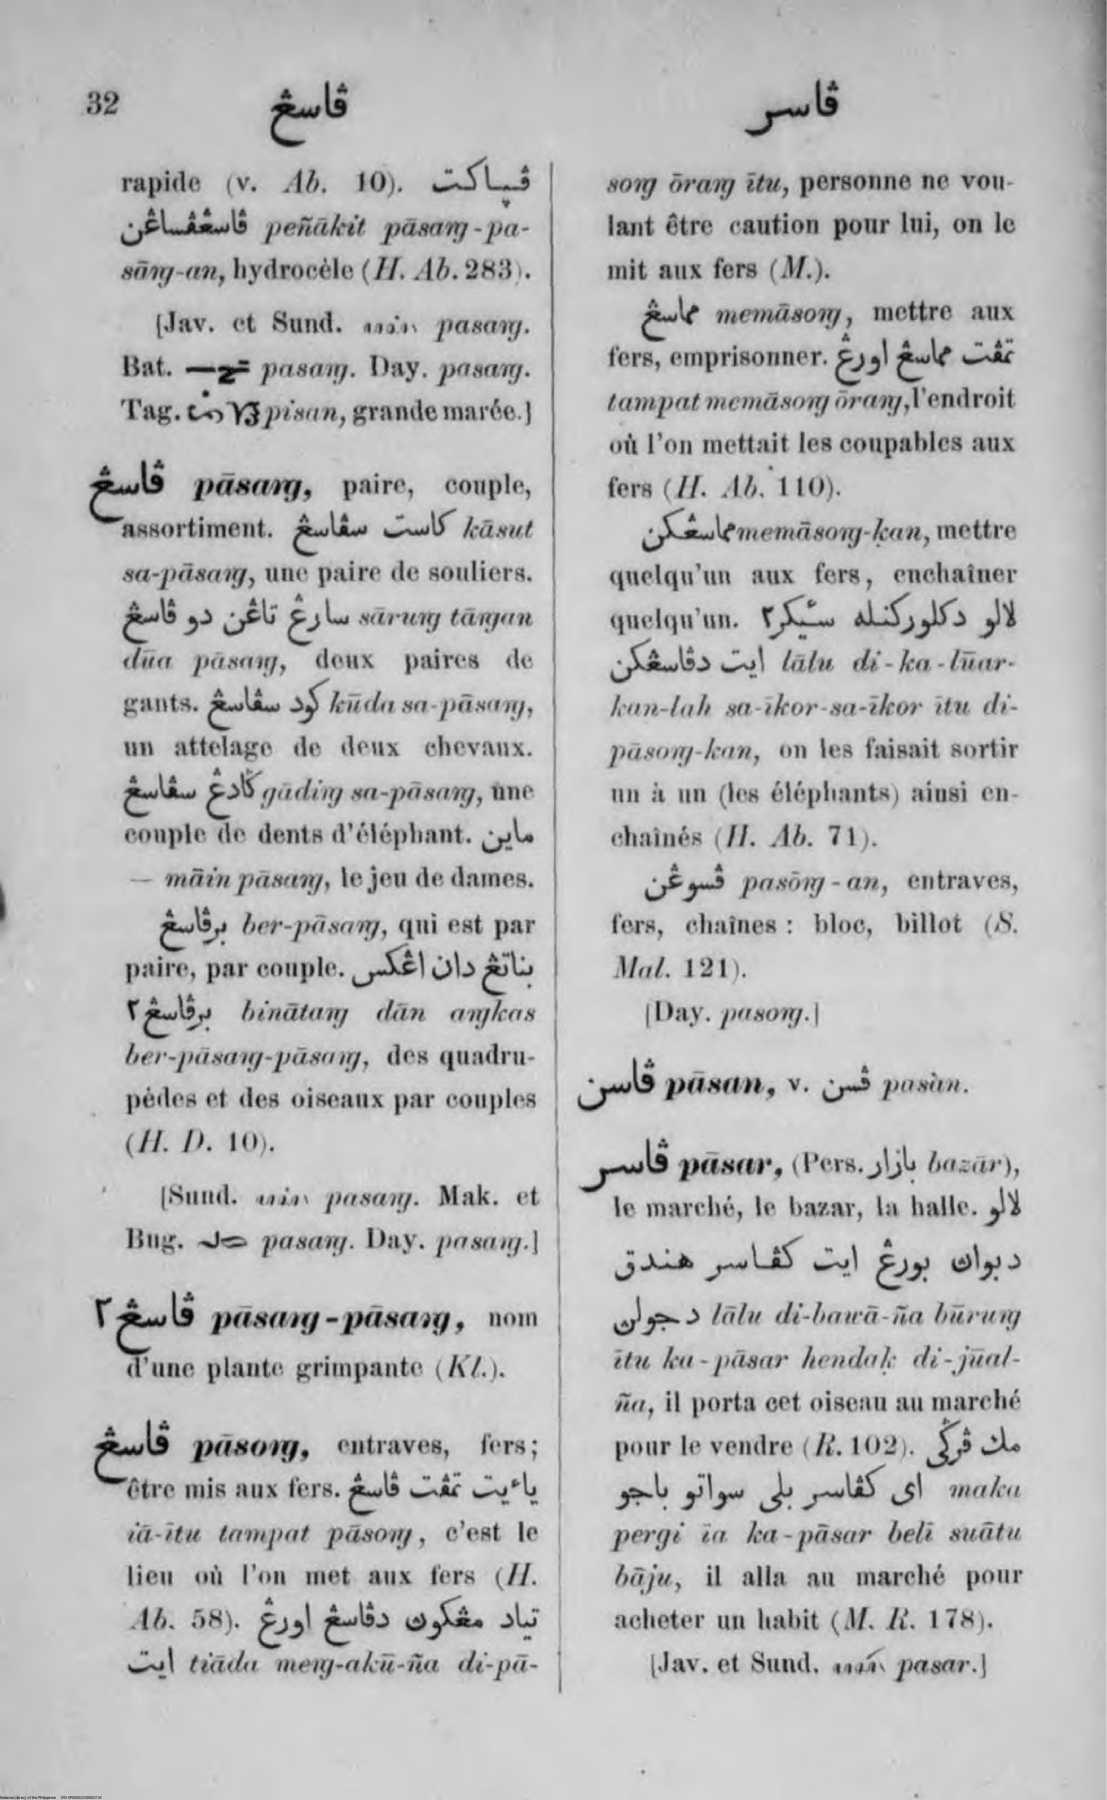 32
ڤاسڠ
ڤاسر
rapide (v. Ab. 10). ڤڽاكت
ڤاسڠڤساڠن peñākit pāsaṉg-pa-
sāṉg-an, hydrocèle (H. Ab. 283).
[Jav. et Sund. pasaṉg.
Bat. pasaṉg. Day. pasaṉg.
Tag. pisan, grande marée.]
ڤاسڠ pāsaṉg, paire, couple,
assortiment. كاست سڤاسڠ kāsut
sa-pāsaṉg, une paire de souliers.
سارڠ تاڠن دو ڤاسڠ sāruṉg tāṉgan
dūa pāsaṉg, deux paires de
gants. كود سڤاسڠ kūda sa-pāsaṉg,
un attelage de deux chevaux.
ݢادڠ سڤاسڠ gādiṉg sa-pāsaṉg, une
couple de dents d'éléphant. ماين
— māin pāsaṉg, le jeu de dames.
برڤاسڠ ber-pāsaṉg, qui est par
paire, par couple. بناتڠ دان اڠكس
برڤاسڠ٢ binātaṉg dān aṉgkas
ber-pāsaṉg-pāsaṉg, des quadru-
pèdes et des oiseaux par couples
(H. D. 10).
[Sund. pasaṉg. Mak. et
Bug. pasaṉg. Day. pasaṉg.]
ڤاسڠ٢ pāsaṉg-pāsaṉg, nom
d'une plante grimpante (Kl.).
ڤاسڠ pāsoṉg, entraves, fers;
être mis aux fers. ياءيت تمڤت ڤاسڠ
iā-ītu tampat pāsoṉg, c'est le
lieu où l'on met aux fers (H.
Ab. 58). تياد مڠكون دڤاسڠ اورڠ
ايت tiāda meṉg-akū-ña di-pā-
soṉg ōraṉg ītu, personne ne vou-
lant être caution pour lui, on le
mit aux fers (M.).
مماسڠ memāsoṉg, mettre aux
fers, emprisonner. تمڤت مماسڠ اورڠ
tampat memāsoṉg ōraṉg, l'endroit
où l'on mettait les coupables aux
fers (H. Ab. 110).
مماسڠكن memāsoṉg-ḳan, mettre
quelqu'un aux fers, enchaîner
quelqu'un. لالو دكلوركنله سئيكر٢
ايت دڤاسڠكن lālu di-ka-lūar-
kan-lah sa-īkor-sa-īkor ītu di-
pāsoṉg-kan, on les faisait sortir
un à un (les éléphants) ainsi en-
chaînés (H. Ab. 71).
ڤسوڠن pasōṉg-an, entraves,
fers, chaînes: bloc, billot (S.
Mal. 121).
[Day. pasoṉg.]
ڤاسن pāsan, v. ڤسن pasàn.
ڤاسر pāsar, (Pers. بازار bazār),
le marché, le bazar, la halle. لالو
دبوان بورڠ ايت كڤاسر هندق
دجولن lālu di-bawā-ña būruṉg
ītu ka-pāsar hendaḳ di-jūal-
ña, il porta cet oiseau au marché
pour le vendre (R. 102). مك ڤرݢي
اى كڤاسر بلى سواتو باجو maka
pergi īa ka-pāsar belī suātu
bāju, il alla au marché pour
acheter un habit (M. R. 178).
[Jav. et Sund. pasar.]